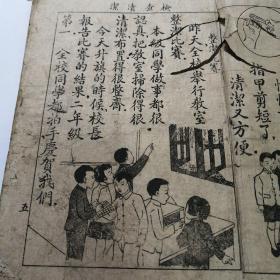 指甲剪短了
清潔又方便
檢查清潔
昨天全校舉行教室
整潔比賽。
本級同學做事都很
認真，把教室掃除得很
清潔，布置得很整齊。
今天升旗的時候，校長
報告比賽的結果，二年級
第一。全校同學都拍手慶賀我們。
五